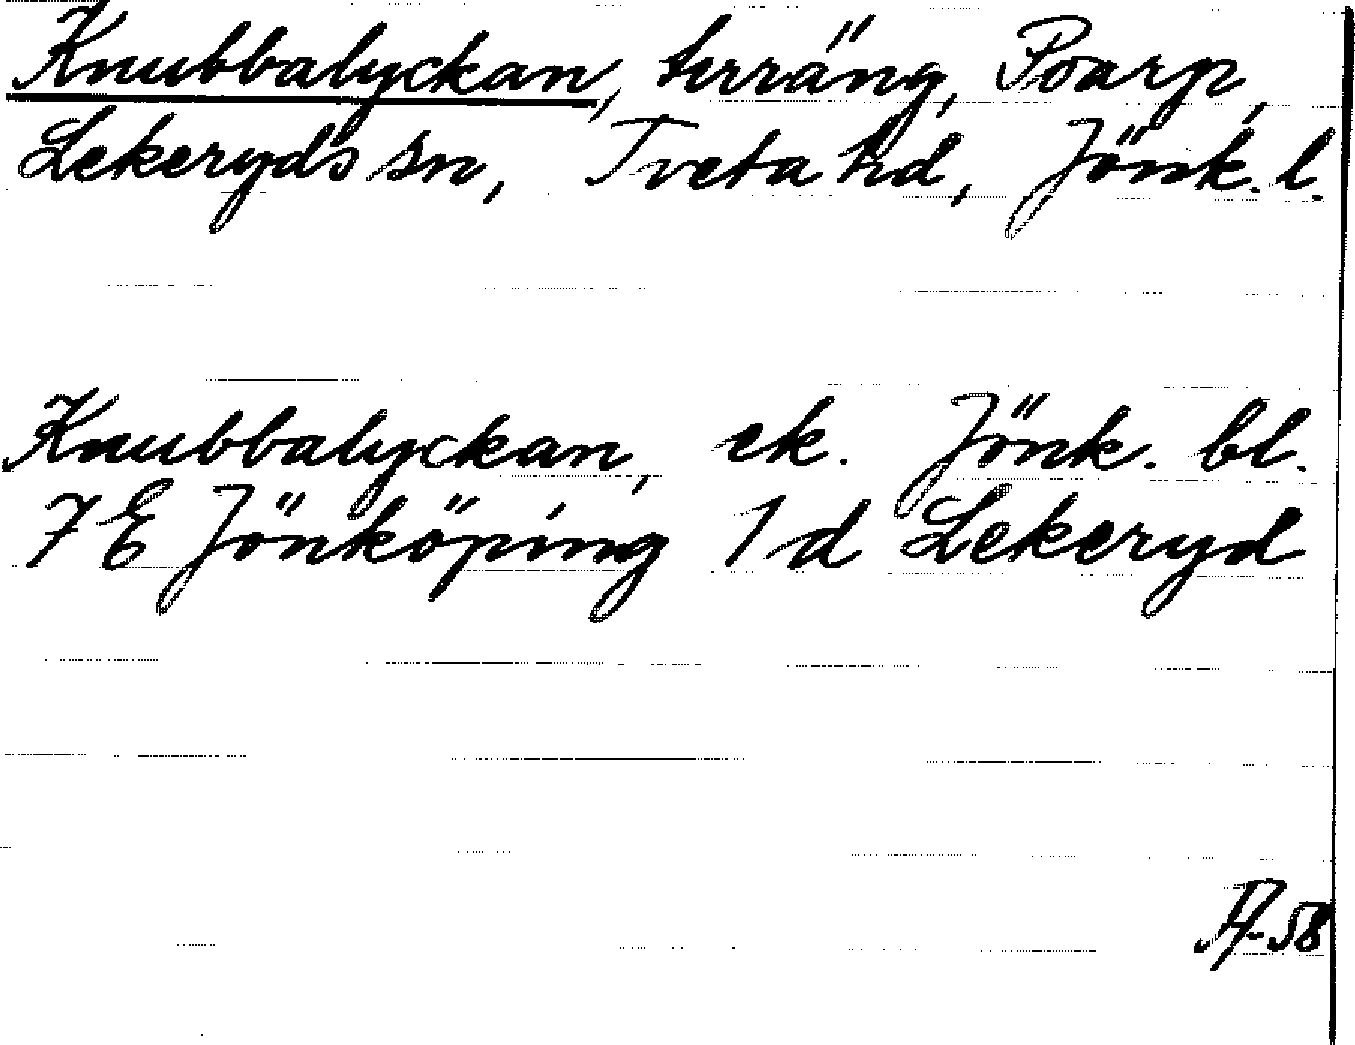 Knubbalyckan, terräng, Poarp,
Lekeryds sn, Tveta hd, Jönk. l.
Knubbalyckan, ek. Jönk. bl.
7 E Jönköping 1 d Lekeryd